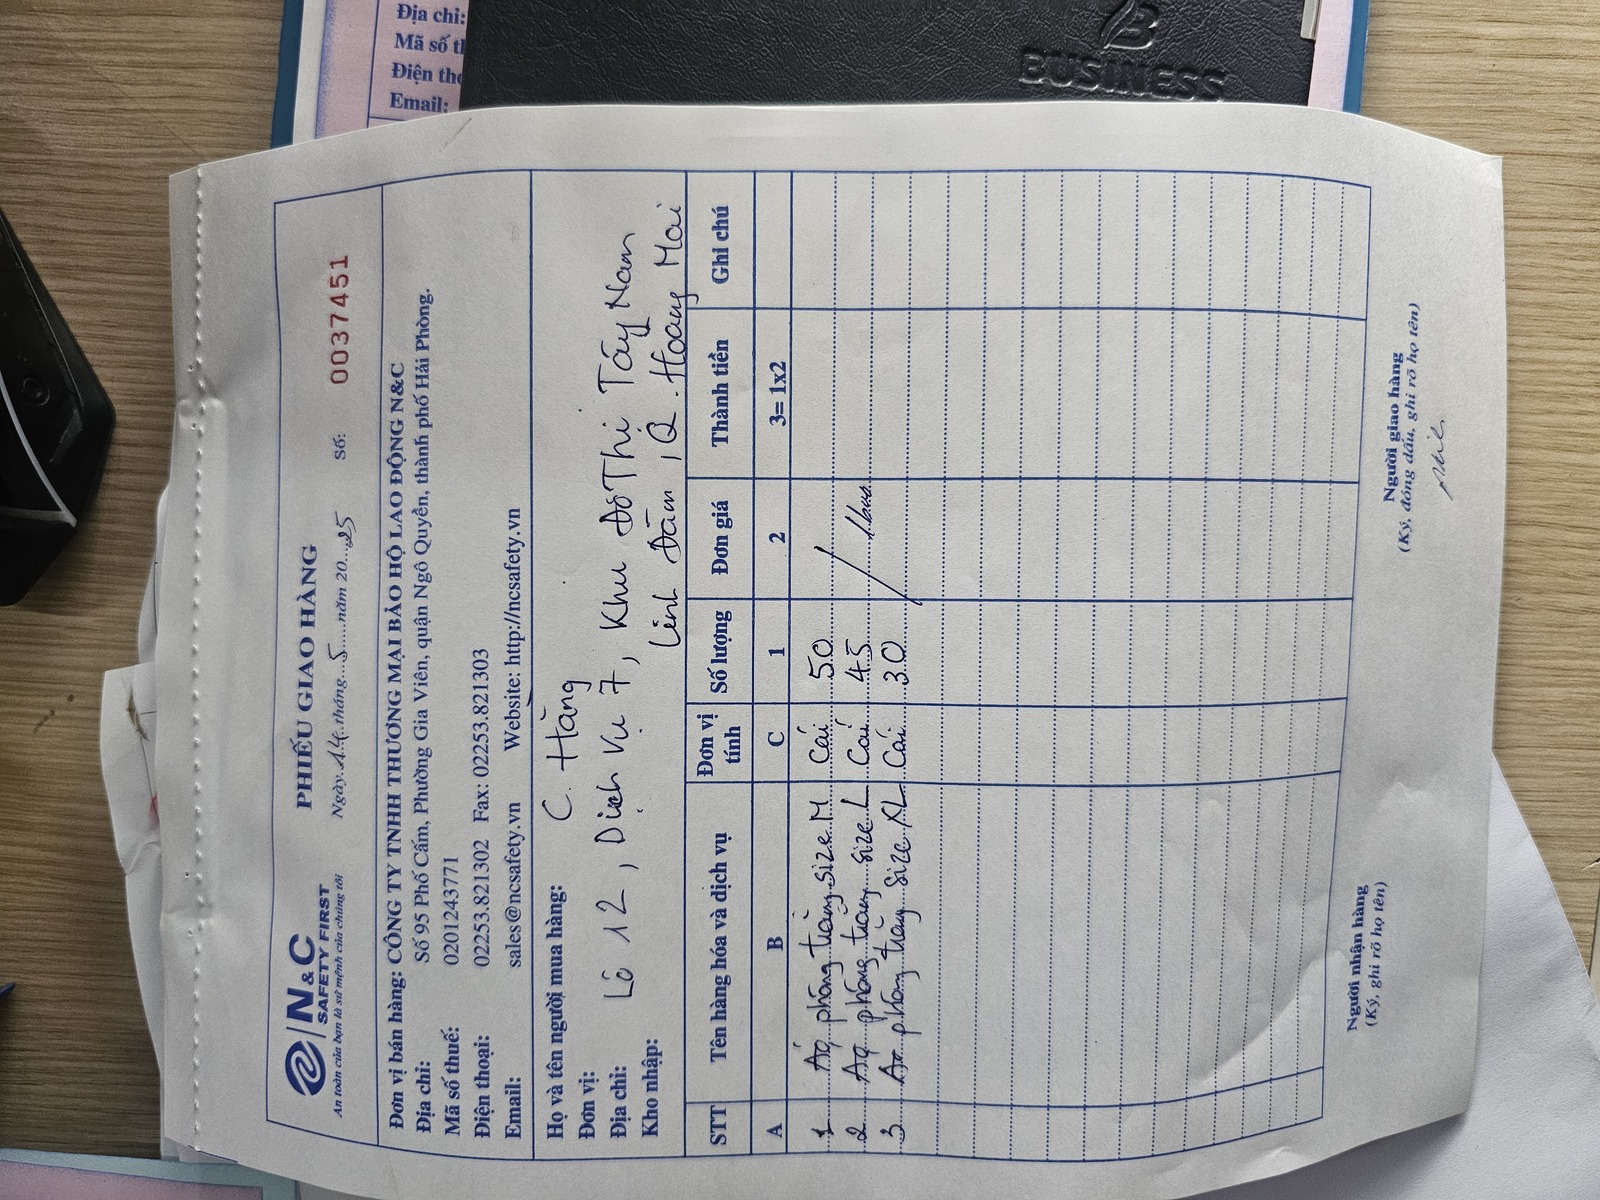 Địa chỉ:
Mã số th
Điện tho
Email:
BUSINESS
N&C
SAFETY FIRST
An toàn của bạn là sứ mệnh của chúng tôi
PHIẾU GIAO HÀNG
Ngày 14 tháng 5 năm 2025 Số: 0037451
Đơn vị bán hàng: CÔNG TY TNHH THƯƠNG MẠI BẢO HỘ LAO ĐỘNG N&C
Địa chỉ: Số 95 Phố Cấm, Phường Gia Viên, quận Ngô Quyền, thành phố Hải Phòng.
Mã số thuế: 0201243771
Điện thoại: 02253.821302 Fax: 02253.821303
Email: sales@ncsafety.vn Website: http://ncsafety.vn
Họ và tên người mua hàng: C. Hằng
Đơn vị:
Địa chỉ: Lô 12, Dịch Vụ 7, Khu Đô Thị Tây Nam
Kho nhập: Linh Đàm, Q. Hoàng Mai
STT Tên hàng hóa và dịch vụ Đơn vị tính Số lượng Đơn giá Thành tiền Ghi chú
A B C 1 2 3= 1x2
1 Áo phông trắng size M Cái 50
2 Áo phông trắng size L Cái 45
3 Áo phông trắng size XL Cái 30
Người nhận hàng Người giao hàng
(Ký, ghi rõ họ tên) (Ký, đóng dấu, ghi rõ họ tên)